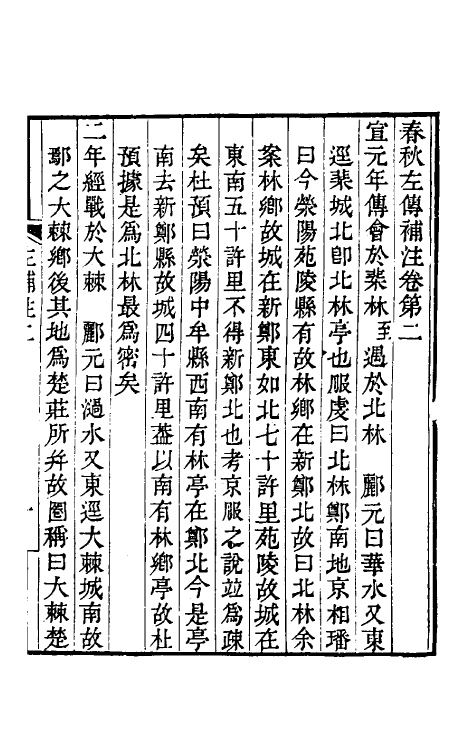 春秋左傳補注卷第二
宣元年傳會於棐林至遇於北林　酈元曰華水又東
逕棐城北卽北林亭也服虔曰北林鄭南地京相璠
曰今滎陽苑陵縣有故林鄉在新鄭北故曰北林余
案林鄉故城在新鄭東如北七十許里苑陵故城在
東南五十許里不得新鄭北也考京服之說並爲疎
矣杜預曰滎陽中牟縣西南有林亭在鄭北今是亭
南去新鄭縣故城四十許里葢以南有林鄉亭故杜
預據是爲北林最爲密矣
二年經戰於大棘　酈元曰濄水又東逕大棘城南故
鄢之大棘鄉後其地爲楚莊所幷故圈稱曰大棘楚
左補注二
一